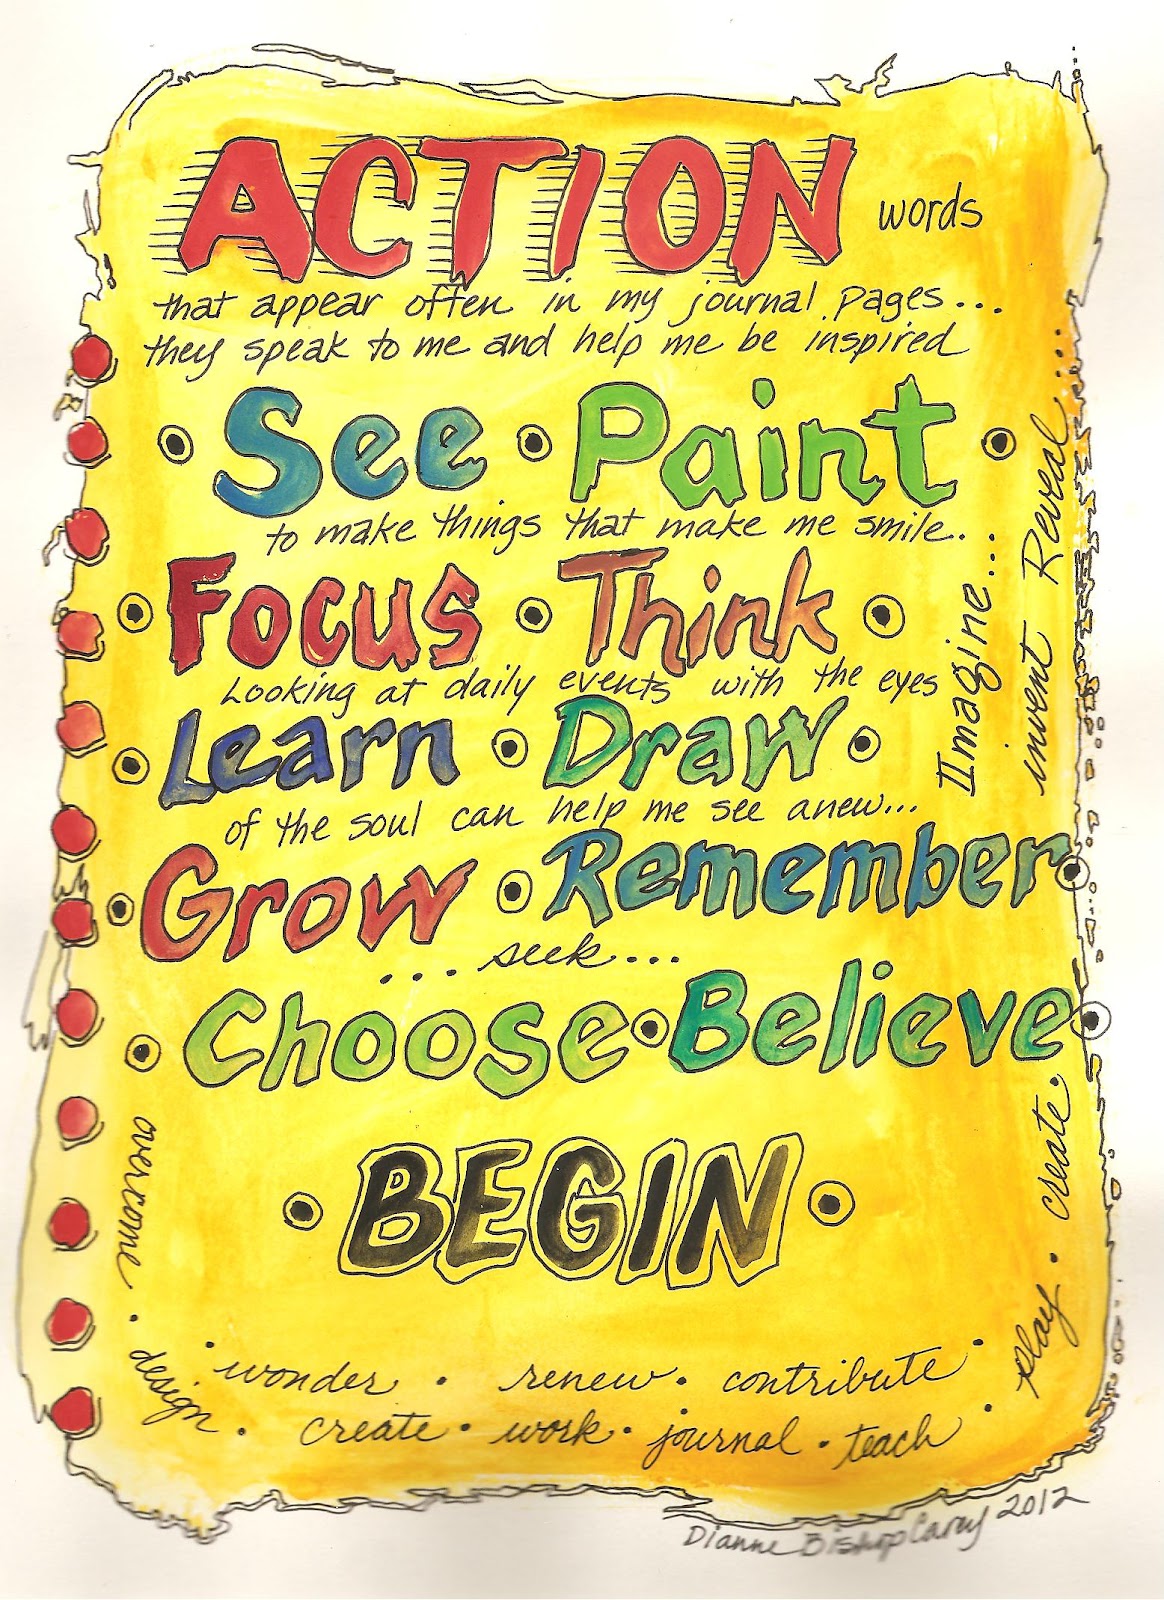 ACTION words
that appear often in my journal pages...
they speak to me and help me be inspired
See • Paint
to make things that make me smile..
Focus • Think
Looking at daily events with the eyes
Learn • Draw
of the soul can help me see anew...
Grow • Remember
...seek...
Choose • Believe
BEGIN
Imagine...
invent Reveal....
overcome •
design •
• wonder • renew • contribute •
create • work • journal • teach •
play • create •
Dianne Bishop Carey 2012